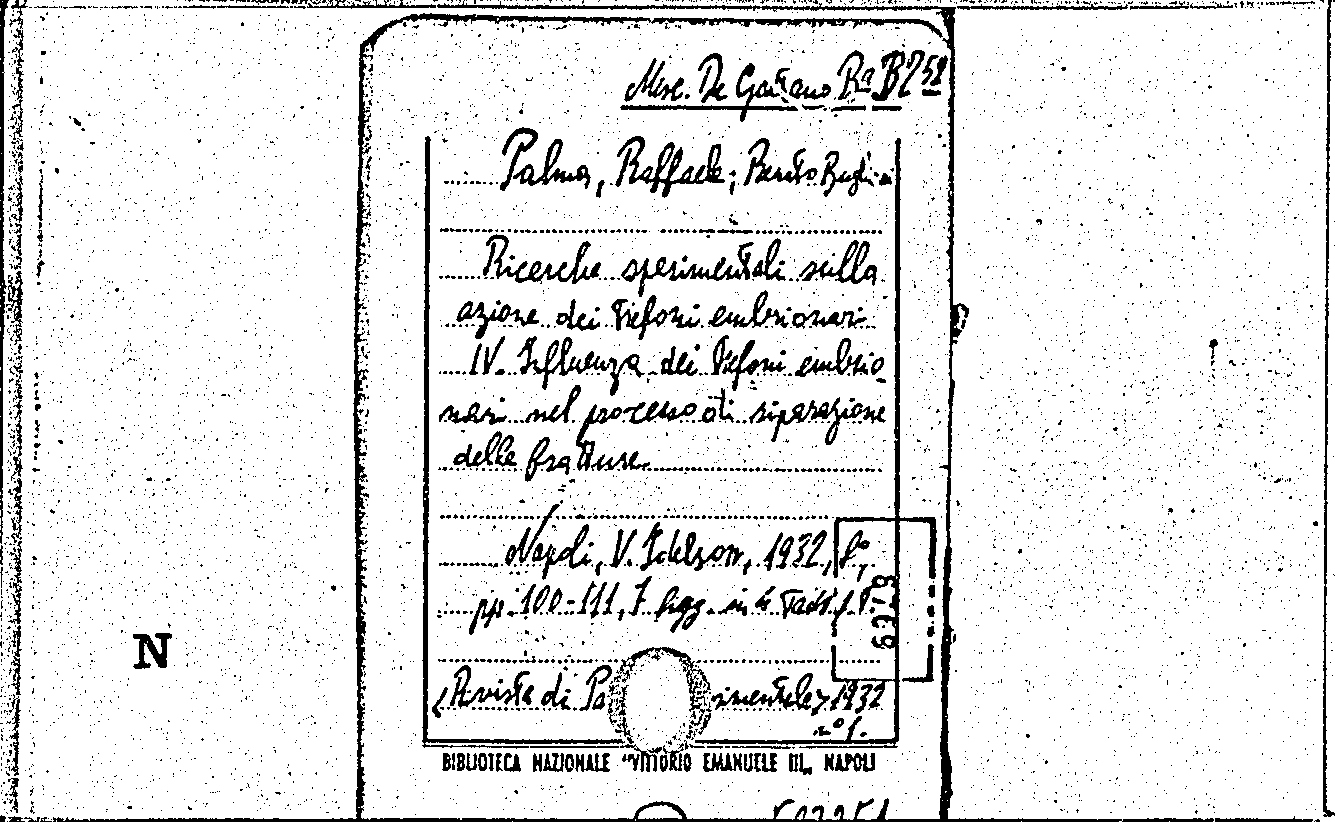 Misc. De Gaetano Ra B2 52
Palma, Raffaele; Benito
Ricerche sperimentali sulla
azione dei Trefoni embrionari
IV. Influenza dei Trefoni embrio
nari nel processo di riparazione
delle fratture.
Napoli, V. Idelson, 1932, 8°,
pp. 100-111, 7 figg. in 4 tavv. f.t.
6979
N
<Rivista di Pa imentale> 1932
n° 1.
BIBLIOTECA NAZIONALE "VITTORIO EMANUELE III„ NAPOLI